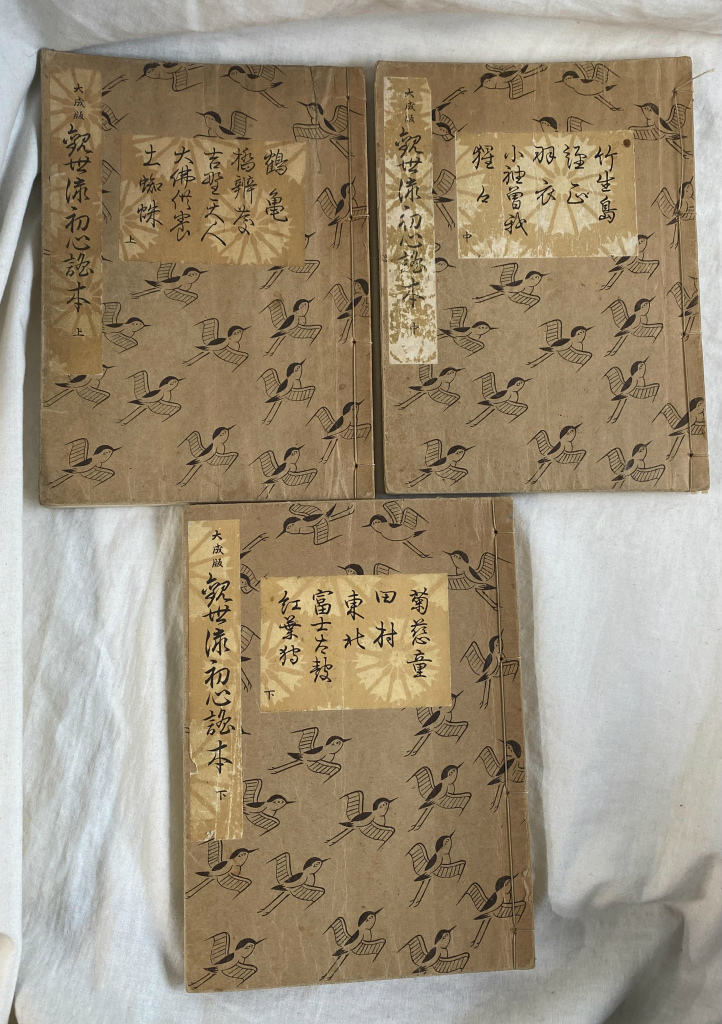 大成版
觀世流初心謠本 上
鶴亀
橋辨慶
吉野天人
大佛供養
土蜘蛛
上
大成版
觀世流初心謠本 中
竹生島
經正
羽衣
小袖曽我
猩々
中
大成版
觀世流初心謠本 下
菊慈童
田村
東北
富士太鼓
紅葉狩
下